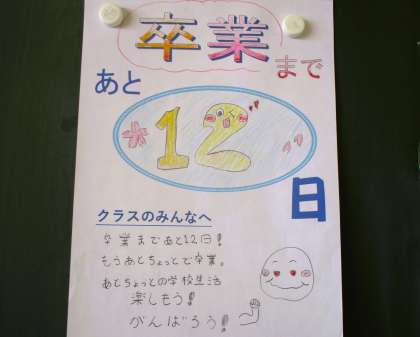 卒業まで
あと
12
日
クラスのみんなへ
卒業まであと12日!
もうあとちょっとで卒業。
あとちょっとの学校生活
楽しもう!
がんばろう!